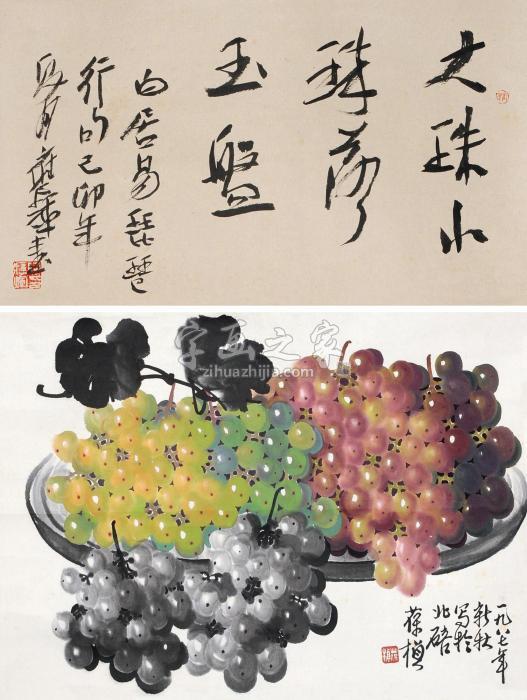 大珠小
珠落
玉盤
白居易琵琶
行句己卯年
夏月
書
字画之家
zihuazhijia.com
一九八七年
新秋
写於
北碚
葆楨